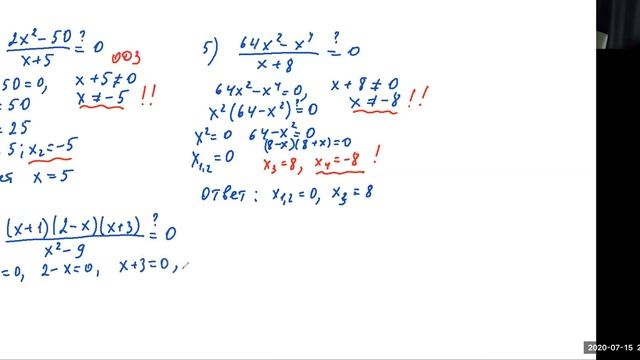 2x²-50 ? 
x+5 = 0
ОДЗ
50=0, x+5≠0
= 50 x≠-5 !!
= 25
5; x₂=-5
x=5
5) 64x²-x⁴ ?
x+8 = 0
64x²-x⁴=0, x+8≠0
x²(64-x²)=0 x≠-8 !!
x²=0 64-x²=0
(8-x)(8+x)=0
x₁,₂=0 x₃=8, x₄=-8 !
Ответ: x₁,₂=0, x₃=8
(x+1)(2-x)(x+3) ?
x²-9 = 0
=0, 2-x=0, x+3=0,
2020-07-15 2